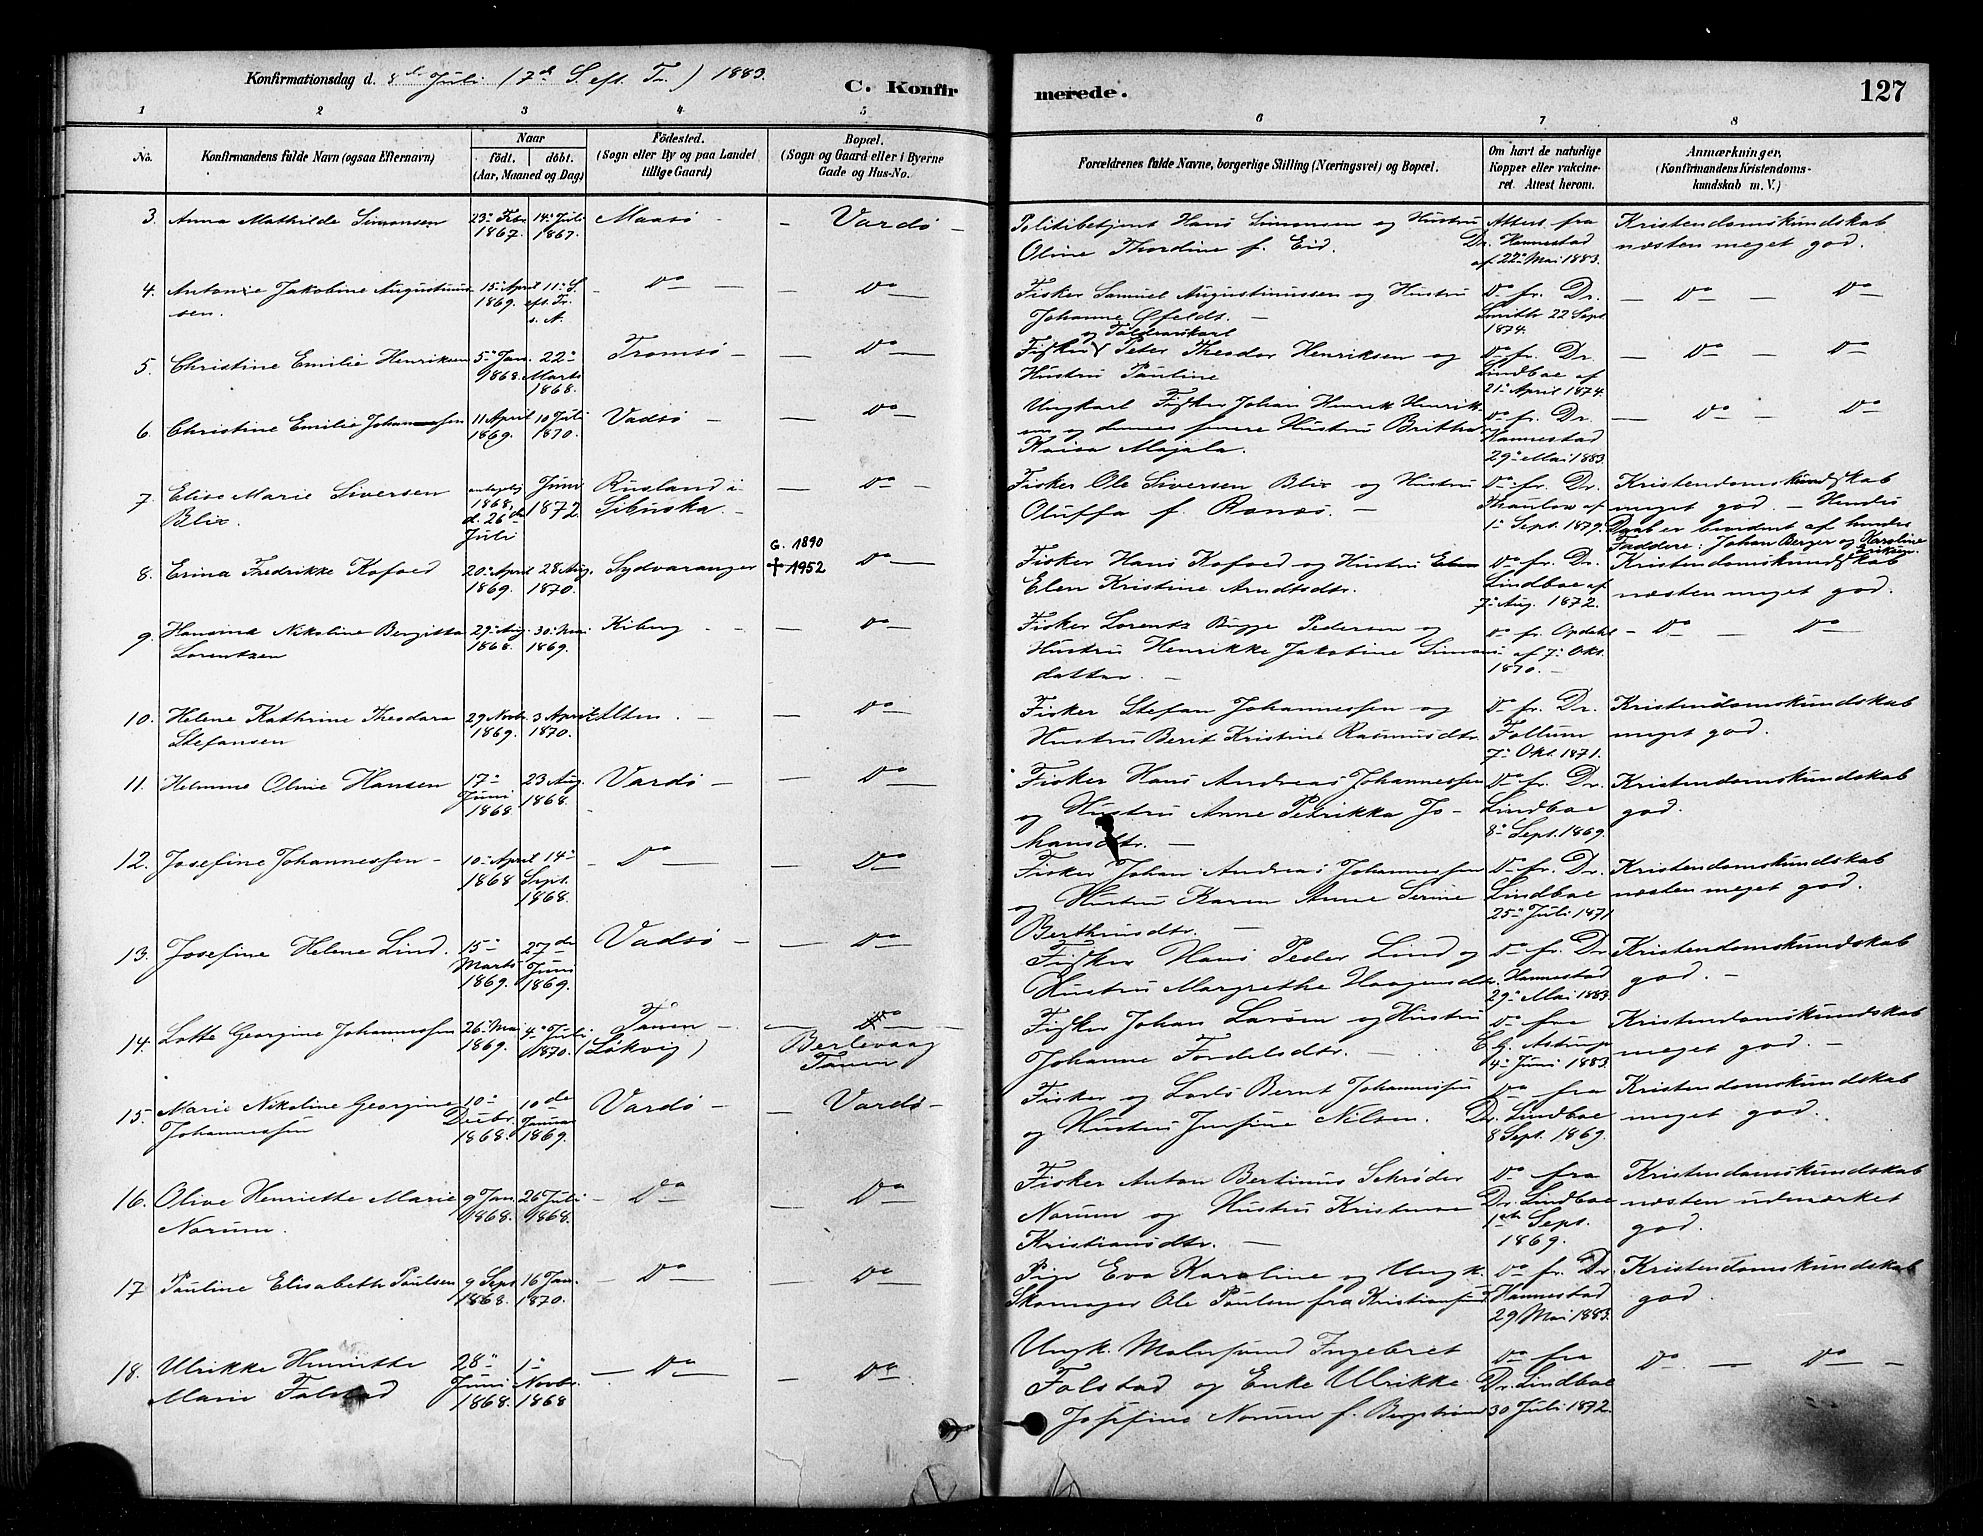 Konfirmationsdag d. 8de Juli (7de S. eft. Tr.) 1883.
C. Konfir
merede.
127
1 2 3 4 5 6 7 8
No.
Konfirmandens fulde Navn (ogsaa Efternavn)
Naar
födt. döbt.
(Aar, Maaned og Dag)
Födested.
(Sogn eller By og paa Landet
tillige Gaard)
Bopæl.
(Sogn og Gaard eller i Byerne
Gade og Hus-No.
Forældrenes fulde Navne, borgerlige Stilling (Næringsvei) og Bopæl.
Om havt de naturlige
Kopper eller vakcine-
ret. Attest herom.
Anmærkninger,
(Konfirmandens Kristendoms-
kundskab m. V.)
3. Anna Mathilde Simonsen
23de Febr.
1867.
14de Juli
1867.
Maasø -
- Vardø -
Politibetjent Hans Simonsen og Hustru
Oline Thordine f. Eid.
Attest fra
Dr. Hannestad
af 22de Mai 1883.
Kristendomskundskab
næsten meget god.
4. Antonie Jakobine Augustinus-
sen.
15de April
1869.
11te S.
eft. Tr.
s. A.
- Do -
- Do -
Fisker Samuel Augustinussen og Hustru
Johanne Øfeldt. -
Do fr. Dr.
Smith 22 Sept
1874.
- Do - Do
5. Christine Emilie Henriksen
5te Jan.
1868.
22de
Marts
1868.
Tromsø -
- Do -
og Toldvarskarl
Fisker Peter Theodor Henriksen og
Hustru Pauline
Do fr. Dr.
Lindboe af
21de April 1874.
- Do - Do
6. Christine Emilie Johannesen
11 April
1869.
10 Juli
1870.
Vadsø -
- Do -
Ungkarl Fisker Johan Henrik Henrik-
sen og dennes senere Hustru Britha
Kaisa Majala.
Do fr. Dr.
Hannestad
29de Mai 1883.
- Do - Do
7. Elise Marie Siversen
Blix.
antagelig
1868,
d. 26de
Juli
Juni
1872.
Rusland i
Sibuska. -
- Do -
Fisker Ole Siversen Blix og Hustru
Oluffa f. Ronæs. -
Do fr. Dr.
Thaulow af
1de Sept. 1879.
Kristendomskundskab
meget god. - Hendes
Daab er bevidnet af hendes
Faddere: Johan Berger og Karoline
Eriksen.
8. Erina Fredrikke Kofoed
20de April
1869.
28 Aug.
1870.
Sydvaranger
G. 1890
† 1952
Do -
Fisker Hans Kofoed og Hustru Elen
Elen Kristine Arndtsdtr.
Do fr. Dr.
Lindboe af
7de Aug. 1872.
Kristendomskundskab
næsten meget god.
9. Hansine Nikoline Bergitta
Lorentzen
29de Aug.
1868.
30de Mai
1869.
Kiberg -
- Do
Fisker Lorentz Bugge Pedersen og
Hustru Henrikke Jakobine Simons-
datter. -
Do fr. Opdahl
af 7de Okt.
1870. -
- Do - Do
10. Helene Kathrine Theodora
Stefansen
29 Novb.
1869.
3 April
1870.
Alten. -
- Do
Fisker Stefan Johannessen og
Hustru Berit Kristine Rasmusdtr.
Do fr. Dr.
Follum
7de Okt. 1871.
Kristendomskundskab
meget god.
11. Helmine Oline Hansen
17de
Juni
1868
23 Aug.
1868.
Vardø -
- Do
Fisker Hans Andreas Johannessen
og Hustru Anne Petrikka Jo-
hansdtr. -
Do fr. Dr.
Lindboe
8de Sept. 1869.
Kristendomskundskab
god.
12. Josefine Johannessen -
10de April
1868
14de
Sept.
1868.
- Do -
- Do
Fisker Johan Andreas Johannessen
og Hustru Karen Anne Serine
Bertheusdtr. -
Do fr. Dr.
Lindboe
25de Juli 1871
Kristendomskundskab
næsten meget god.
13. Josefine Helene Lind.
15de
Marts
1869.
27de
Juni
1869.
Vadsø -
- Do
Fisker Hans Peder Lind og
Hustru Margrethe Haagensdtr.
Do fr. Dr
Hannestad
29de Mai 1883
Kristendomskundskab
god. -
14. Lotte Georgine Johannessen
26de Mai
1869.
4de Juli
1870.
Tanen -
(Løkvig)
- Do -
Berlevaag
Tanen
Fisker Johan Larsen og Hustru
Johanne Fordelsdtr. -
Do fra
C. G. Astrup
4de Juni 1883.
Kristendomskundskab
meget god. -
15. Marie Nikoline Georgine
Johannessen
10de
Decbr.
1868.
10de
Januar
1869.
Vardø -
- Vardø -
Fisker og Lods Bernt Johannessen
og Hustru Josefine Nilsen.
Do fra
Dr. Lindboe
8 Sept. 1869.
Kristendomskundskab
meget god.
16. Olive Henriette Marie
Norum.
9 Jan.
1868.
26 Juli
1868.
- Do
- Do
Fisker Anton Bertinus Schrøder
Norum og Hustru Kristence
Kristiansdtr. -
Do fra
Dr. Lindboe
1ste Sept.
1869.
Kristendomskundskab
næsten udmærket
god.
17. Pauline Elisabeth Paulsen
9 Sept
1868.
16 Jan.
1870.
- Do -
- Do
Pige Eva Karoline og Ungk.
Skomager Ole Paulsen fra Kristiansund
Do fr. Dr
Hannestad
29 Mai 1883.
Kristendomskundskab
god.
18. Ulrikke Henriette
Marie Folstad
28de
Juni
1868.
1de
Novbr.
1868
- Do -
- Do
Ungk. Malersvend Ingebret
Folstad og Enke Ulrikke
Josefine Norum f. Bergstrøm
Do fra
Dr. Lindboe
30 Juli 1872.
Do. - Do -